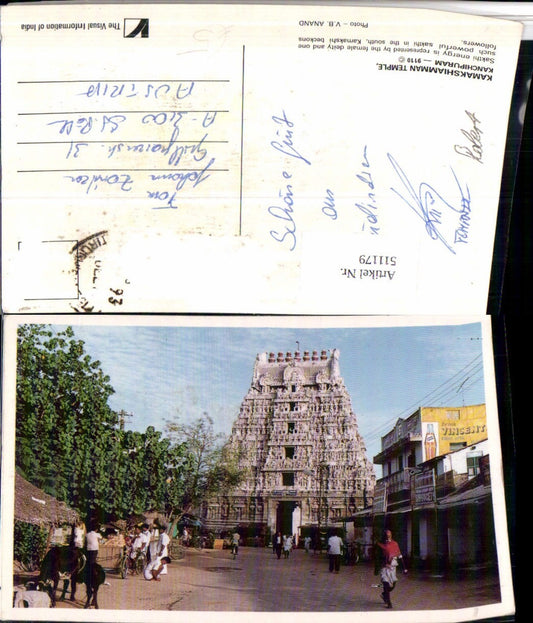 KAMAKSHIAMMAN TEMPLE,
KANCHIPURAM — 9110 ©
Sakthi energy is represented by the female deity and one
such powerful sakthi in the south, Kamakshi beckons
followers.
Photo - V.B. ANAND
The Visual Information of India
Schöne Grüße
aus
Südindien
Robert
Fam
Johann
Grillparzerstr. 31
A-3100 St. Pölt
AUSTRIA
93
Artikel Nr.
511179
Drink
VINCENT